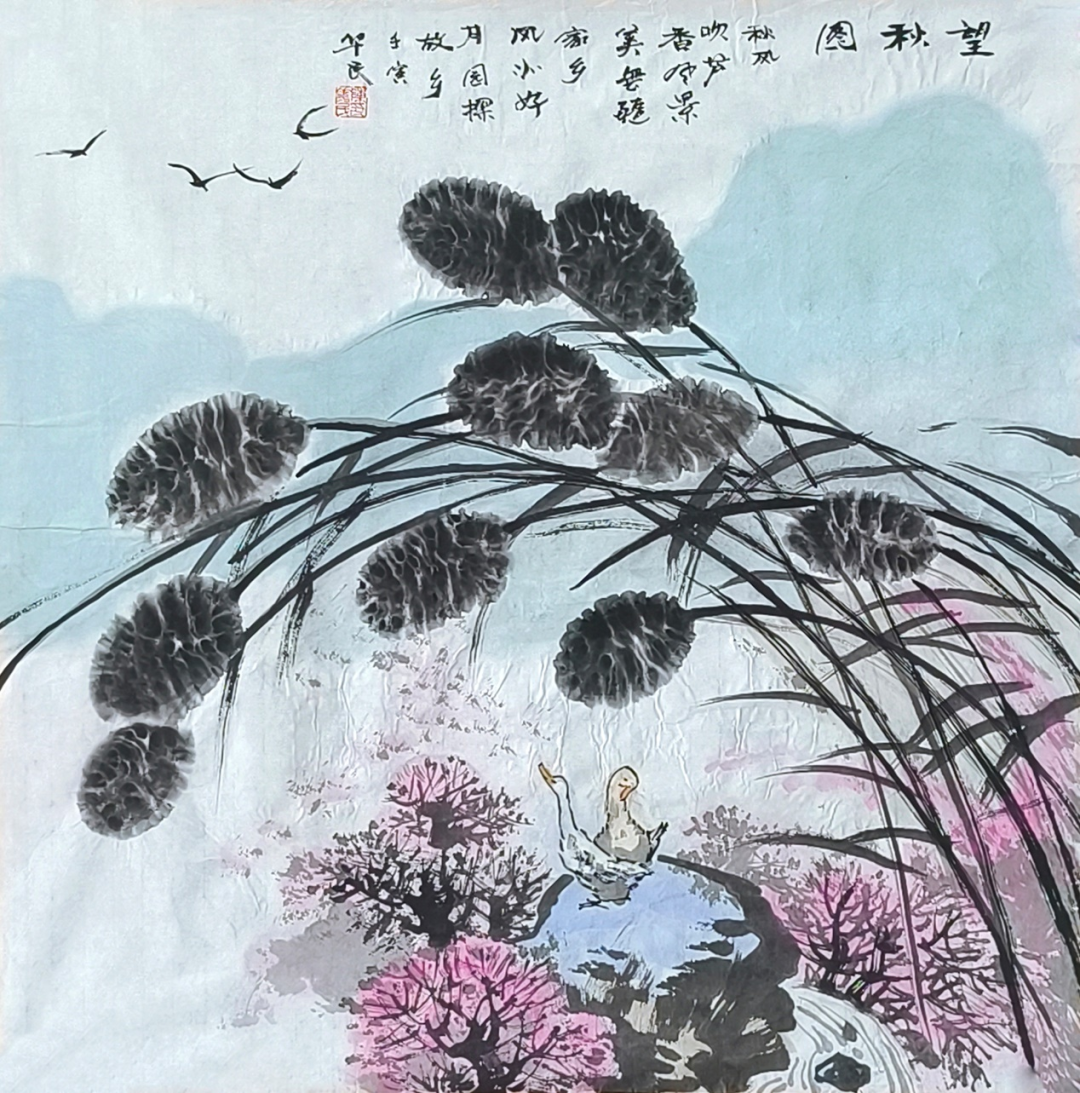 望秋图
秋风
吹芦
香风景
美無
家乡
风水好
月圆探
故乡
壬寅
华民